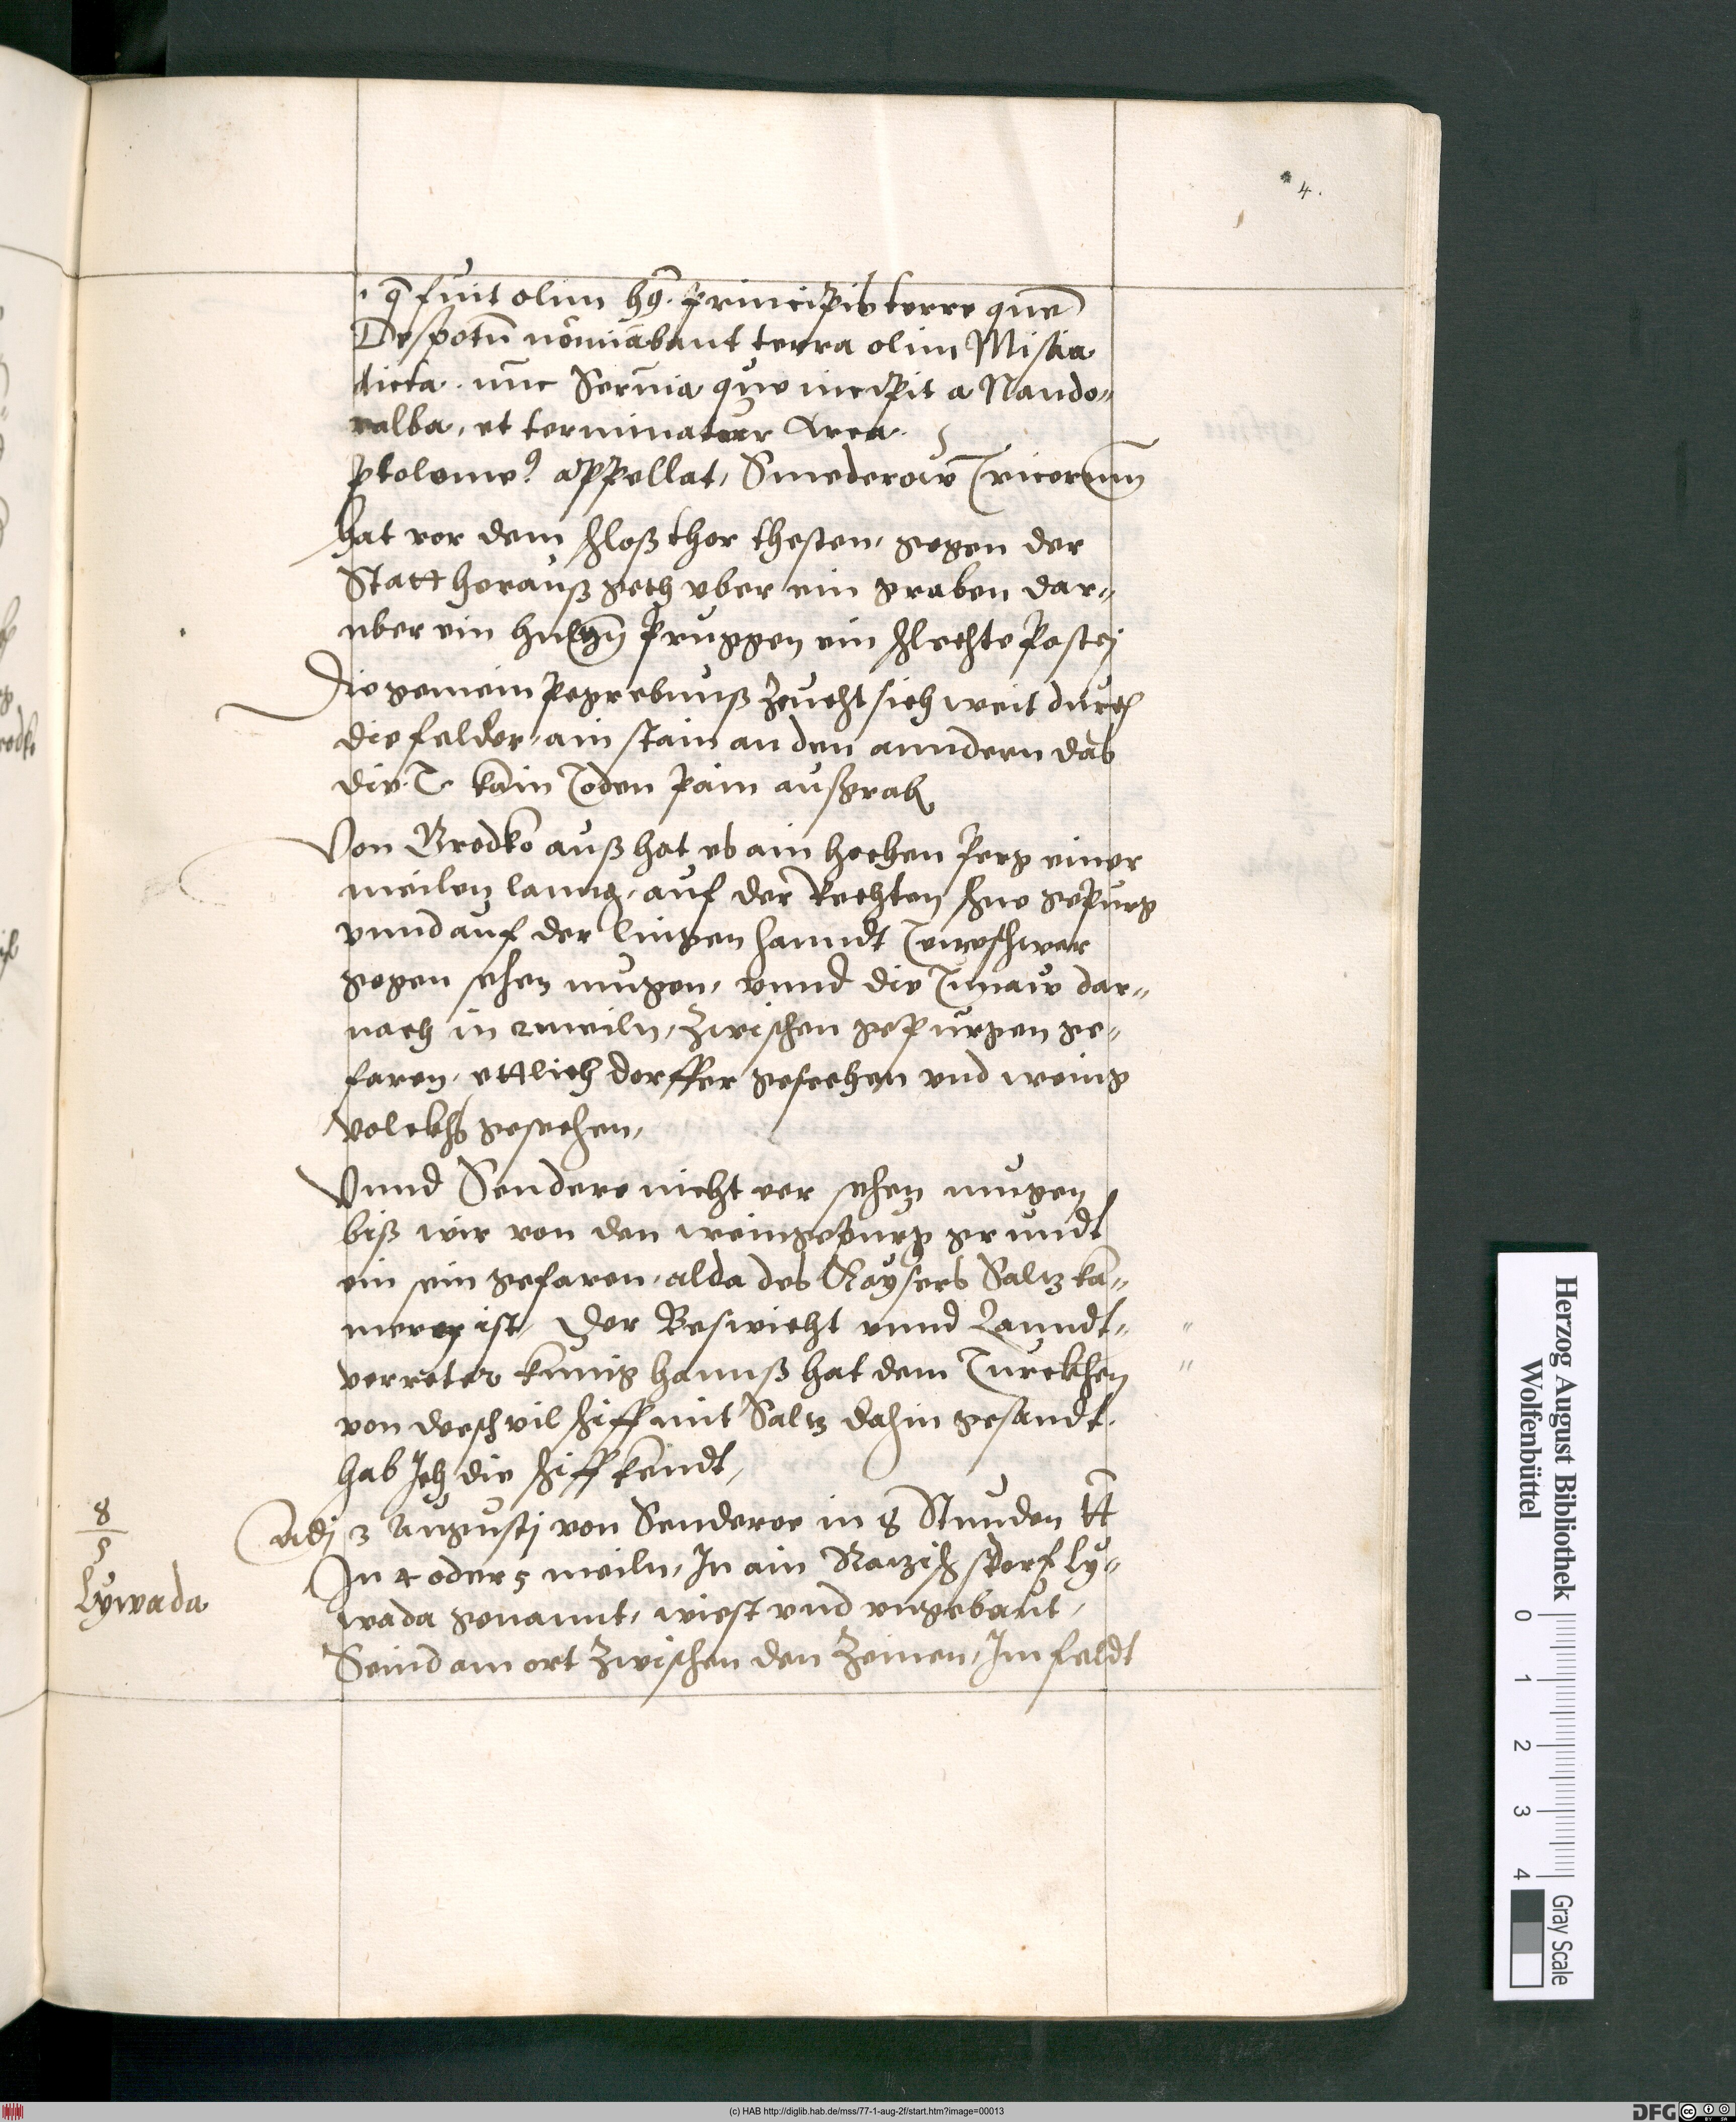 4.
q̄ fuit olim hg̃. principis terre quē
Despotū nōmiabant terra olim Misia
dicta. nūc Seruia que incipit a Nando⸗
ralba, et terminatur
Ptolome⁹ appellat, Smederow Tricornum
hat vor dem schloß thor gegen der
Statt herauß geth vber ein graben dar⸗
uber ein Pruggen ein schlechte Pastej
Die gemein Pegrebnuß zeucht sich weit durch
die felder, ain stain an den anndern das
die T. kain Toden Pain außgrab
Von Brodko auß hat es ain hochen Perg einer
meilen lanng, auf der Rechten schne gepurg
vnnd auf der lingen hanndt Temeschwar
gegen sehen mugen, vnnd die Tunaw dar⸗
nach in 2 meiln, zwischen gepurgen ge⸗
faren, ettlich dorffer gesechen vnd wenig
volckhs gesechen,
Vnnd Sendere nicht eer sehen mugen
biß wir von den weingepurg grundt
ein sein gefaren, alda des Kaysers Saltz ka⸗
merer ist, Der Beswicht vnnd Lanndt⸗
verreter kunig hannß hat dem Turckhen
von vil schiff mit Saltz dahin gesandt.
hab Jch die schiff kendt,
Adj 3 Augustj von Senderoe in 8 Stunden
Jn 4 oder 5 meiln, Jn ain Ratzisch dorf Ly⸗
wada genannt, wiest vnd vngebaut,
Seind am ort zwischen den Zeinen, Jm feldt
8
5
Lywada
Herzog August Bibliothek
Wolfenbüttel
0 1 2 3 4
Gray Scale
(c) HAB http://diglib.hab.de/mss/77-1-aug-2f/start.htm?image=00013
DFG